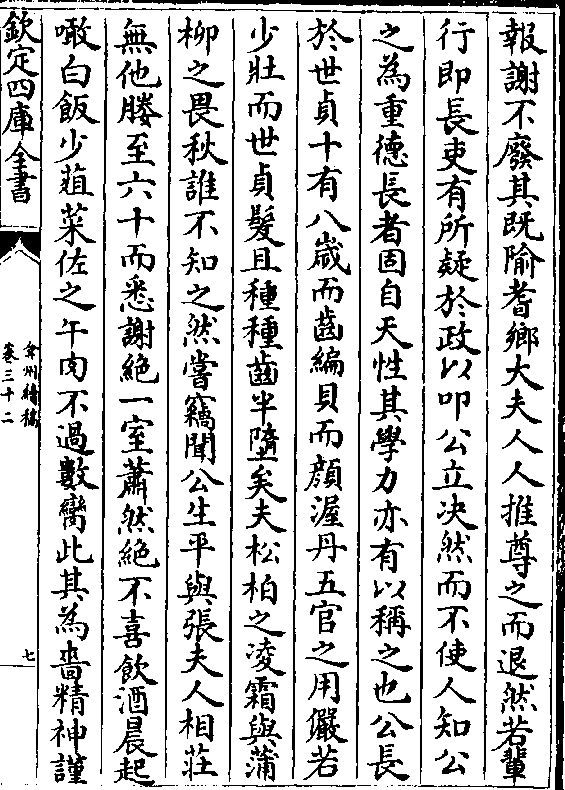 報謝不廢其既隃耆鄉大夫人人推尊之而退然若輩
行即長吏有所疑於政以叩公立决然而不使人知公
之為重德長者固自天性其學力亦有以稱之也公長
於世貞十有八歲而齒編貝而顔渥丹五官之用儼若
少壯而世貞髮且種種齒半墮矣夫松柏之凌霜與蒲
柳之畏秋誰不知之然嘗竊聞公生平與張夫人相莊
無他媵至六十而悉謝絶一室蕭然絶不喜飲酒晨起
噉白飯少葅菜佐之午肉不過數臠此其為嗇精神謹
欽定四庫全書
弇州續稿
卷三十二
七